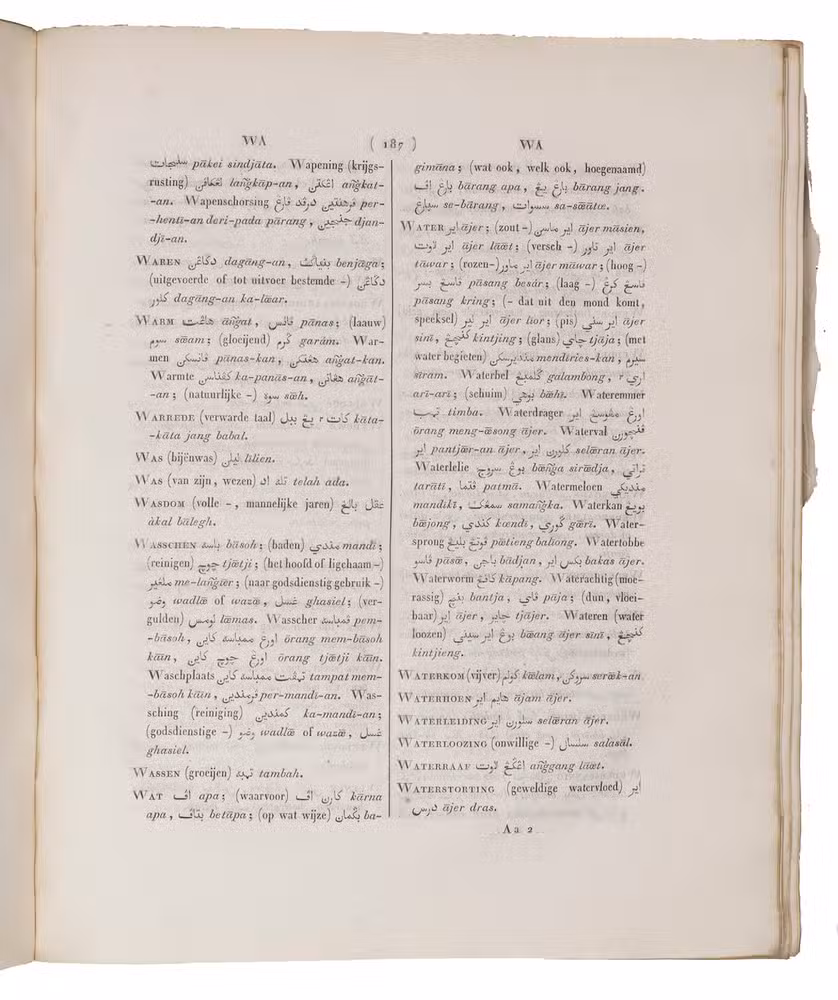 WA
( 187 )
WA
سنجات pākei sindjāta. Wapening (krijgs-
rusting) لڠكاڤن lang̃kāp-an, اڠكتن ang̃kat-
-an. Wapenschorsing ڤرهنتين درڤد ڤارڠ per-
-henti-an deri-pada pārang, جنجين djan-
dji-an.
WAREN دڬاڠن dagāng-an, بنياڬ benjāga;
(uitgevoerde of tot uitvoer bestemde -) دڬاڠن
كلور dagāng-an ka-lūar.
WARM هاڠت āng̃at, ڤانس pānas; (laauw)
سوم sūam; (gloeijend) ݢرم garām. War-
men ڤانسكن pānas-kan, هڠتكن āng̃at-kan.
Warmte كڤناسن ka-panās-an, هڠاتن āng̃āt-
-an; (natuurlijke -) سوه sūh.
WARREDE (verwarde taal) كات٢ يڠ ببل kāta-
-kāta jang babal.
WAS (bijënwas) ليلين līlien.
WAS (van zijn, wezen) تله اد telah ada.
WASDOM (volle -, mannelijke jaren) عقل بالغ
àkal bālegh.
WASSCHEN باسه bāsoh; (baden) مندي mandi;
(reinigen) چوچ tjūtji; (het hoofd of ligchaam -)
ملڠير me-lang̃ir; (naar godsdienstig gebruik -)
وضو wadlū of wazū, غسل ghasiel; (ver-
gulden) لومس lūmas. Wasscher ڤمباسه pem-
-bāsoh, اورڠ ممباسه كاين ōrang mem-bāsoh
kāin, اورڠ چوچ كاين ōrang tjūtji kāin.
Waschplaats تمڤت ممباسه كاين tampat mem-
-bāsoh kāin, ڤرمندين per-mandi-an. Was-
sching (reiniging) كمندين ka-mandi-an;
(godsdienstige -) وضو wadlū of wazū, غسل
ghasiel.
WASSEN (groeijen) تمبه tambah.
WAT اڤ apa; (waarvoor) كارن اڤ kārna
apa, بتاڤ betāpa; (op wat wijze) بݢمان ba-
gimāna; (wat ook, welk ook, hoegenaamd)
بارڠ اڤ bārang apa, بارڠ يڠ bārang jang.
سبارڠ se-bārang, سسوات sa-sūātu.
WATER اير ājer; (zout -) اير ماسن ājer māsien,
اير لاوت ājer lāut; (versch -) اير تاور ājer
tāwar; (rozen-) اير ماور ājer māwar; (hoog -)
ڤاسڠ بسر pāsang besār; (laag -) ڤاسڠ كرڠ
pāsang kring; (- dat uit den mond komt,
speeksel) اير لير ājer lior; (pis) اير سني ājer
sini, كنچڠ kintjing; (glans) چاي tjāja; (met
water begieten) منديرسكن mendiries-kan, سيرم
sīram. Waterbel ݢلمبڠ galambong, اري٢
ari-ari; (schuim) بوهي būhi. Wateremmer
تمب timba. Waterdrager اورڠ مڠوسڠ اير
ōrang meng-ūsong ājer. Waterval ڤنچورن
اير pantjær-an ājer, سلورن اير selūran ājer.
Waterlelie بوڠ سروج būng̃a sirūdja, تراتي
tarāti, ڤتما patma. Watermeloen منديكي
mandiki, سمڠك samang̃ka. Waterkan بويڠ
būjong, كندي kendi, ݢوري gūri. Water-
sprong ڤوتڠ بليڠ pūtieng baliong. Watertobbe
ڤاسو pāsū, باجن bādjan, بكس اير bakas ājer.
Waterworm كاڤڠ kāpang. Waterachtig (moe-
rassig) بنچ bantja, ڤاي pāja; (dun, vloei-
baar) اير ājer, چاير tjājer. Wateren (water
loozen) بوڠ اير سيني būang ājer sini, كنچيڠ
kintjieng.
WATERKOM (vijver) كولم kūlam, سروكن serūk-an
WATERHOEN هايم اير ājam ājer.
WATERLEIDING سلورن اير selūran ājer.
WATERLOOZING (onwillige -) سلسال salasāl.
WATERRAAF اڠݢڠ لاوت āng̃gang lāut.
WATERSTORTING (geweldige watervloed) اير
درس ājer dras.
Aa 2